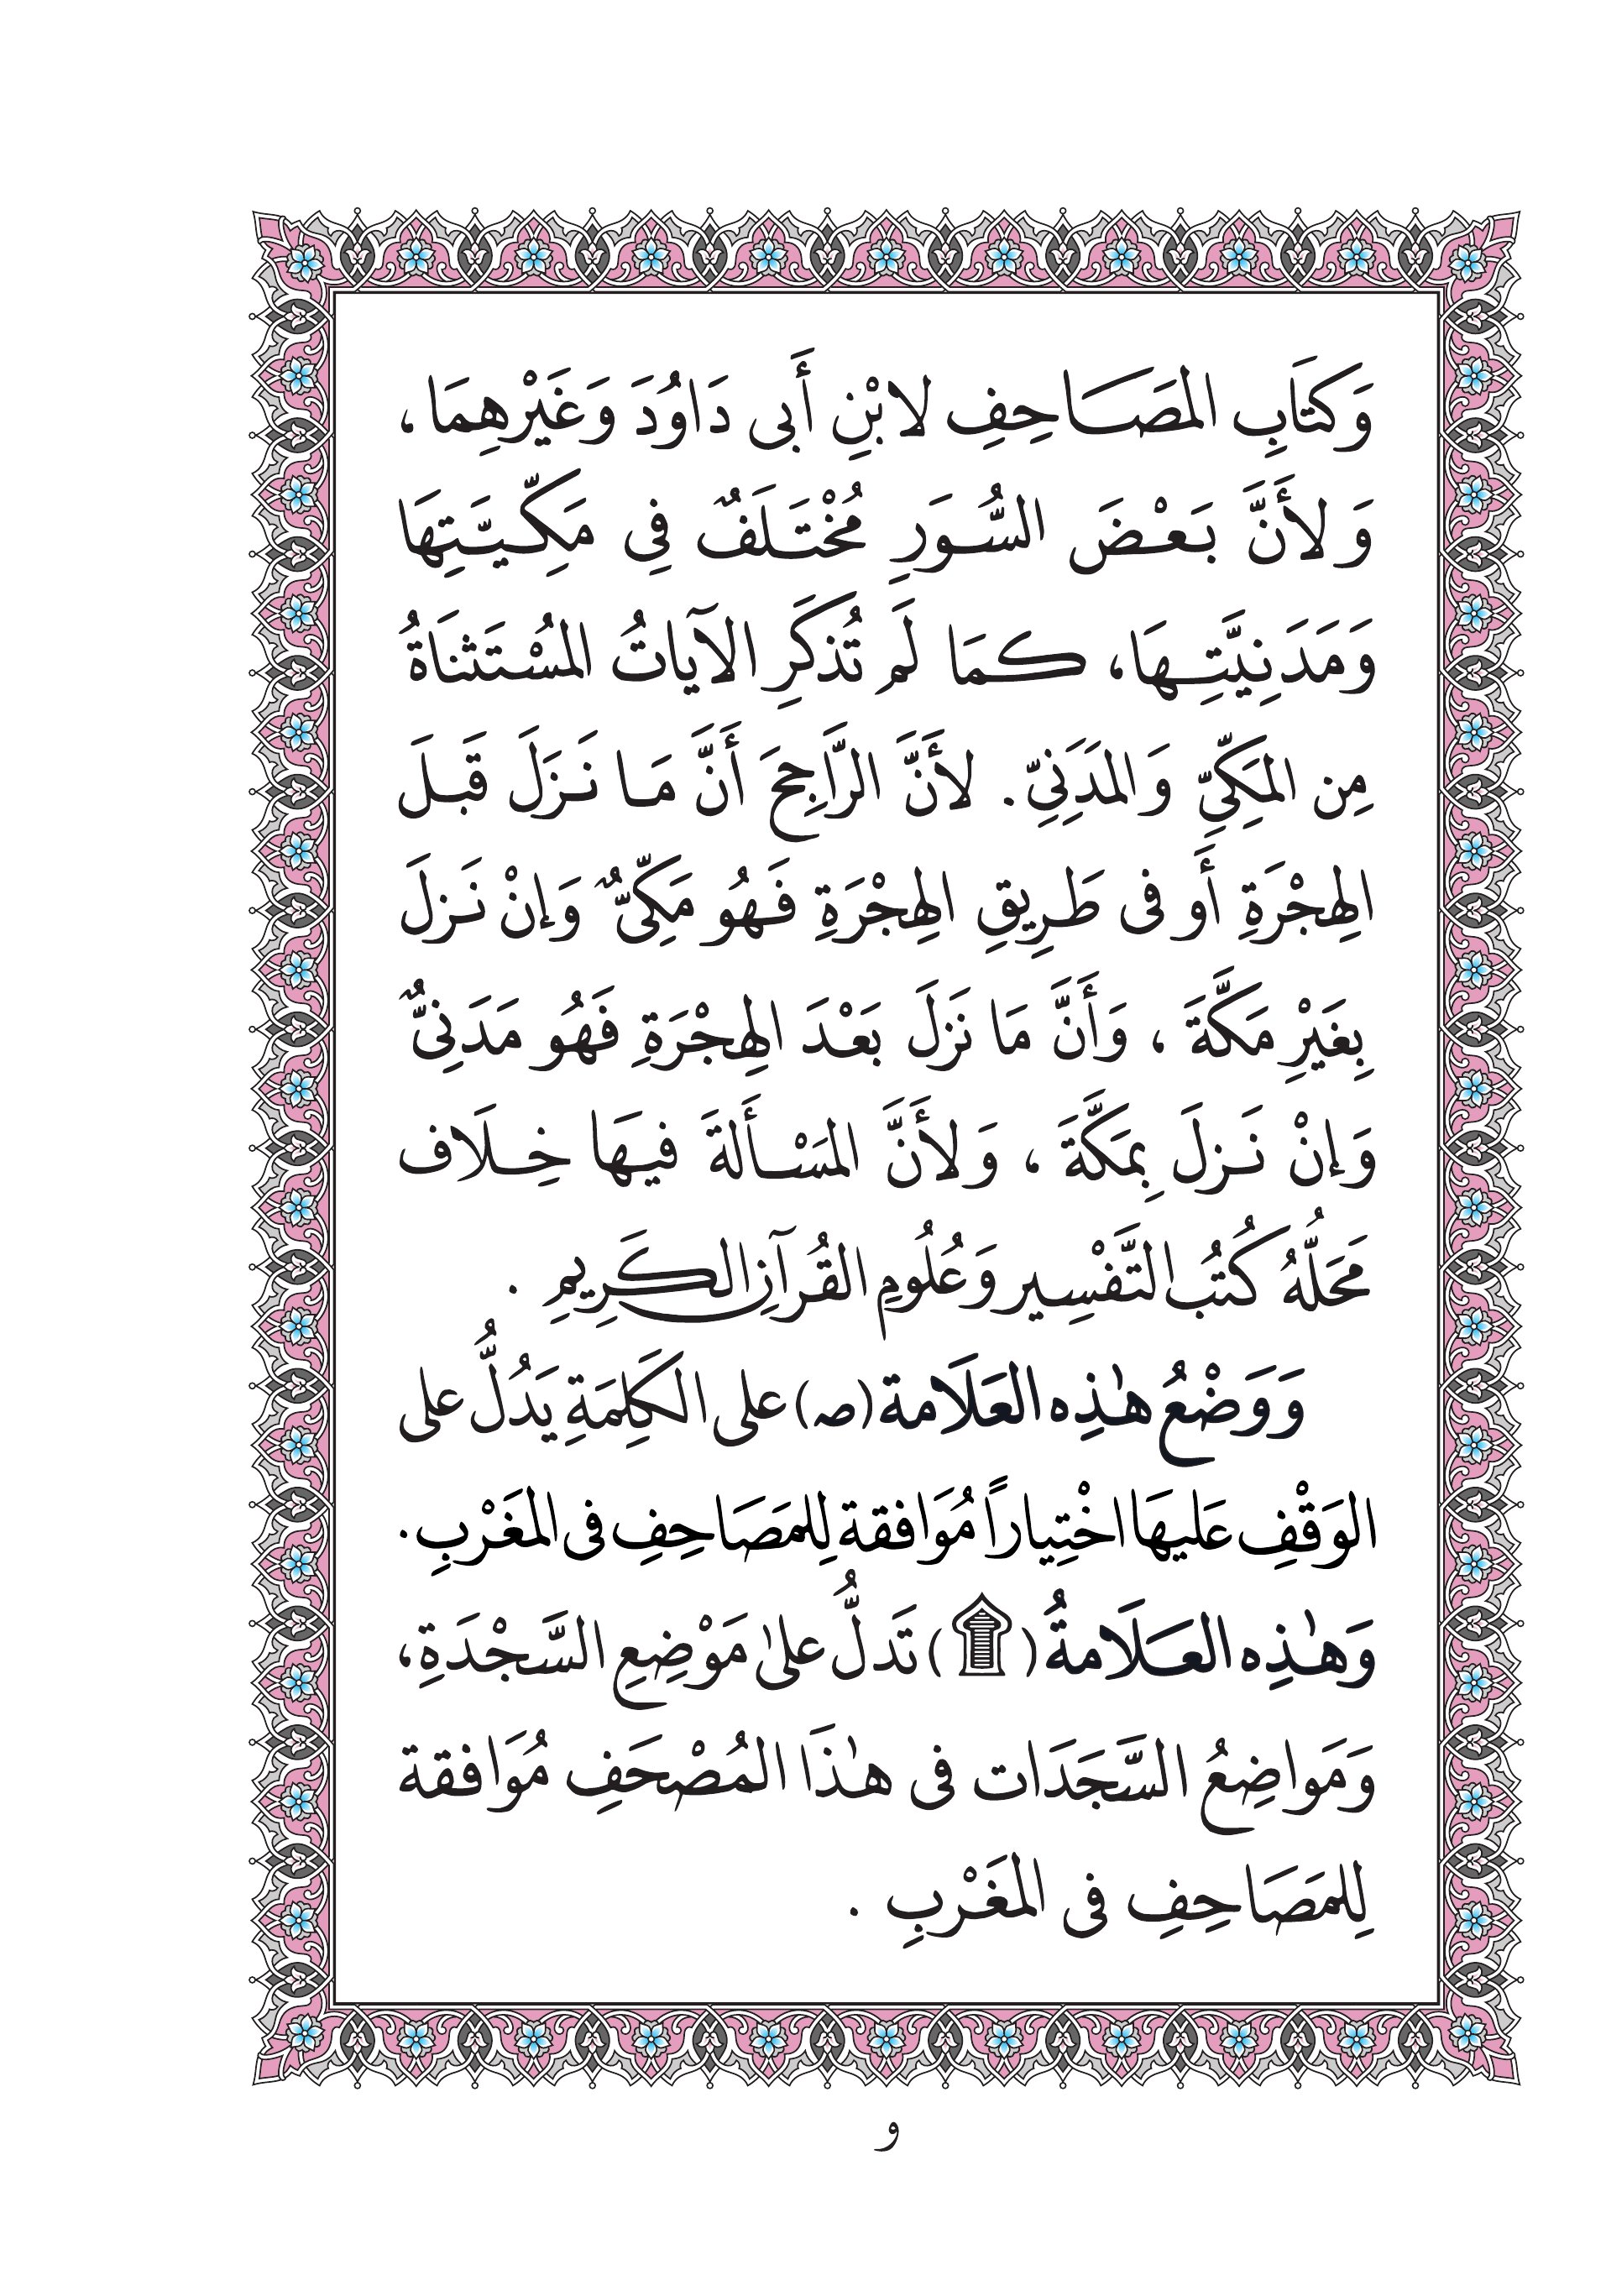 وَكتَابِ المصَاحِفِ لابْنِ أَبى دَاوُدَ وَغَيْرهِمَا،
وَلأَنَّ بَعْضَ السُّوَرِ مُخْتَلَفٌ فِى مَكِّيَّتِهَا
وَمَدَنِيَّتِهَا، كمَا لَم تُذكَرِ الآيَاتُ المسْتَثنَاةُ
مِن المكِّىِّ وَالمدَنِىِّ. لأَنَّ الرَّاجِحَ أَنَّ مَا نَزَلَ قَبلَ
الهِجْرَةِ أَو فى طَرِيقِ الهِجْرَةِ فَهُو مَكِّىٌّ وَإنْ نَزلَ
بِغَيْرِ مَكَّةَ، وَأَنَّ مَا نَزلَ بَعْدَ الهِجْرَةِ فَهُو مَدَنِىٌّ
وَإنْ نَزلَ بِمَكَّةَ، وَلأَنَّ المسْأَلةَ فيهَا خِلَاف
مَحَلُّهُ كُتُب التَّفْسِير وَعُلُومِ القُرآنِ الكَرِيمِ.
وَوَضْعُ هٰذِه العَلَامة (صـ) على الكَلِمَةِ يَدُلُّ على
الوَقْفِ عَليهَا اخْتِياراً مُوَافقة لِلمَصَاحِفِ فى المغْرْبِ.
وَهٰذِه العَلَامةُ (۩) تَدلُّ علىٰ مَوْضِعِ السَّجْدَةِ،
وَمَواضِعُ السَّجَدَات فى هٰذَا المُصْحَفِ مُوَافقة
لِلمَصَاحِفِ فى المغْرْبِ.
و